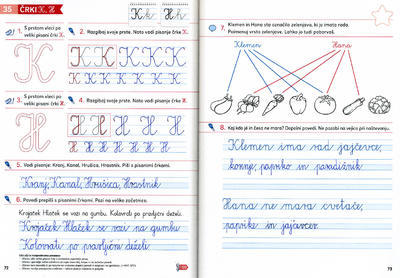 35 ČRKI K, H
K k H h
1. S prstom vleci po veliki pisani črki K.
2. Razgibaj svoje prste. Nato vadi pisanje črke K.
K K K K K K
K K K K K K
3. S prstom vleci po veliki pisani črki H.
4. Razgibaj svoje prste. Nato vadi pisanje črke H.
H H H H H H
H H H H H H
5. Vadi pisanje: Kranj, Kanal, Hrušica, Hrastnik. Piši s pisanimi črkami.
Kranj, Kanal, Hrušica, Hrastnik
6. Povedi prepiši s pisanimi črkami. Pazi na velike začetnice.
Krojaček Hlaček se vozi na gumbu. Kolovrati po pravljični dježeli.
Krojaček Hlaček se vozi na gumbu
Kolovrati po pravljični dježeli
72
7. Klemen in Hana sta označila zelenjavo, ki jo imata rada.
Poimenuj vrsto zelenjave. Lahko jo tudi pobarvaš.
Klemen Hana
8. Kaj rad je in česa ne mara? Dopolni povedi. Ne pozabi na vejico pri naštevanju.
Klemen ima rad jajčevec,
koruzo, papriko in paradižnik
Hana ne mara cvetače,
paprike in jajčevcev.
73